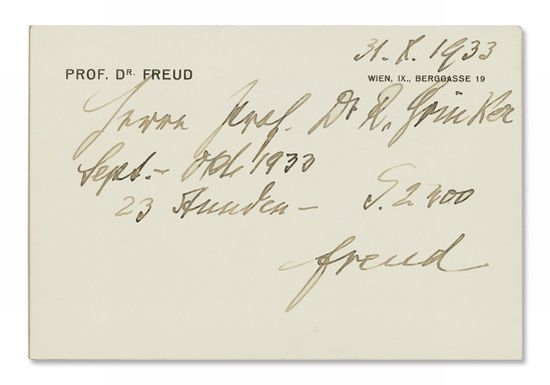 31.X.1933
PROF. DR. FREUD
WIEN, IX., BERGGASSE 19
Herrn Prof. Dr R. Grinker
Sept.– Okt. 1933
23 Stunden – S. 2300
Freud